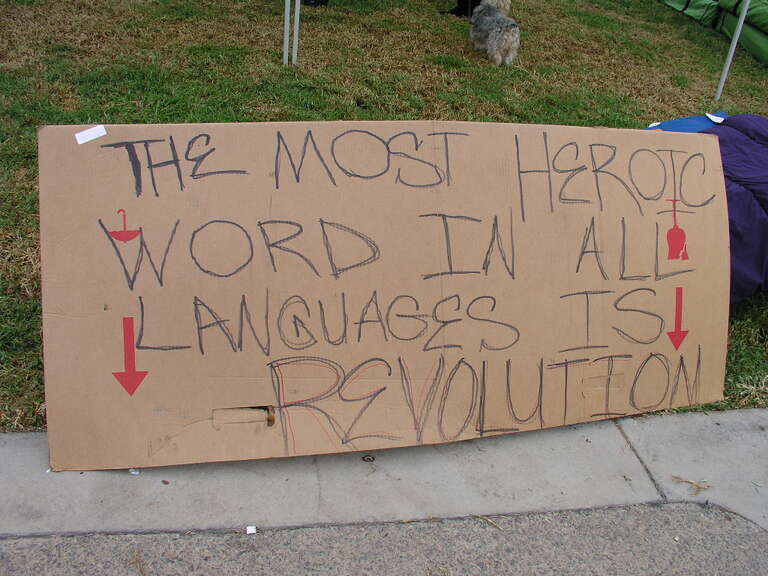 THE MOST HEROIC
WORD IN ALL
LANGUAGES IS
REVOLUTION